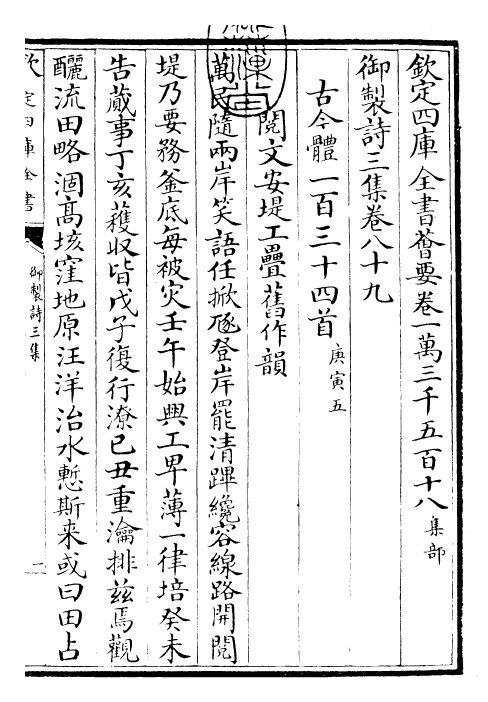 欽定四庫全書薈要卷一萬三千五百十八集部
御製詩三集卷八十九
古今體一百三十四首庚寅五
閱文安堤工疊舊作韻
萬民隨兩岸笑語任掀豗登岸罷清蹕纔容線路開閱
堤乃要務釜底每被灾壬午始興工卑薄一律培癸未
告蕆事丁亥蓰収皆戊子復行潦已丑重瀹排兹焉觀
釃流田略涸髙垓窪地原汪洋治水慙斯来或曰田占
欽定四庫全書
御製詩三集
一